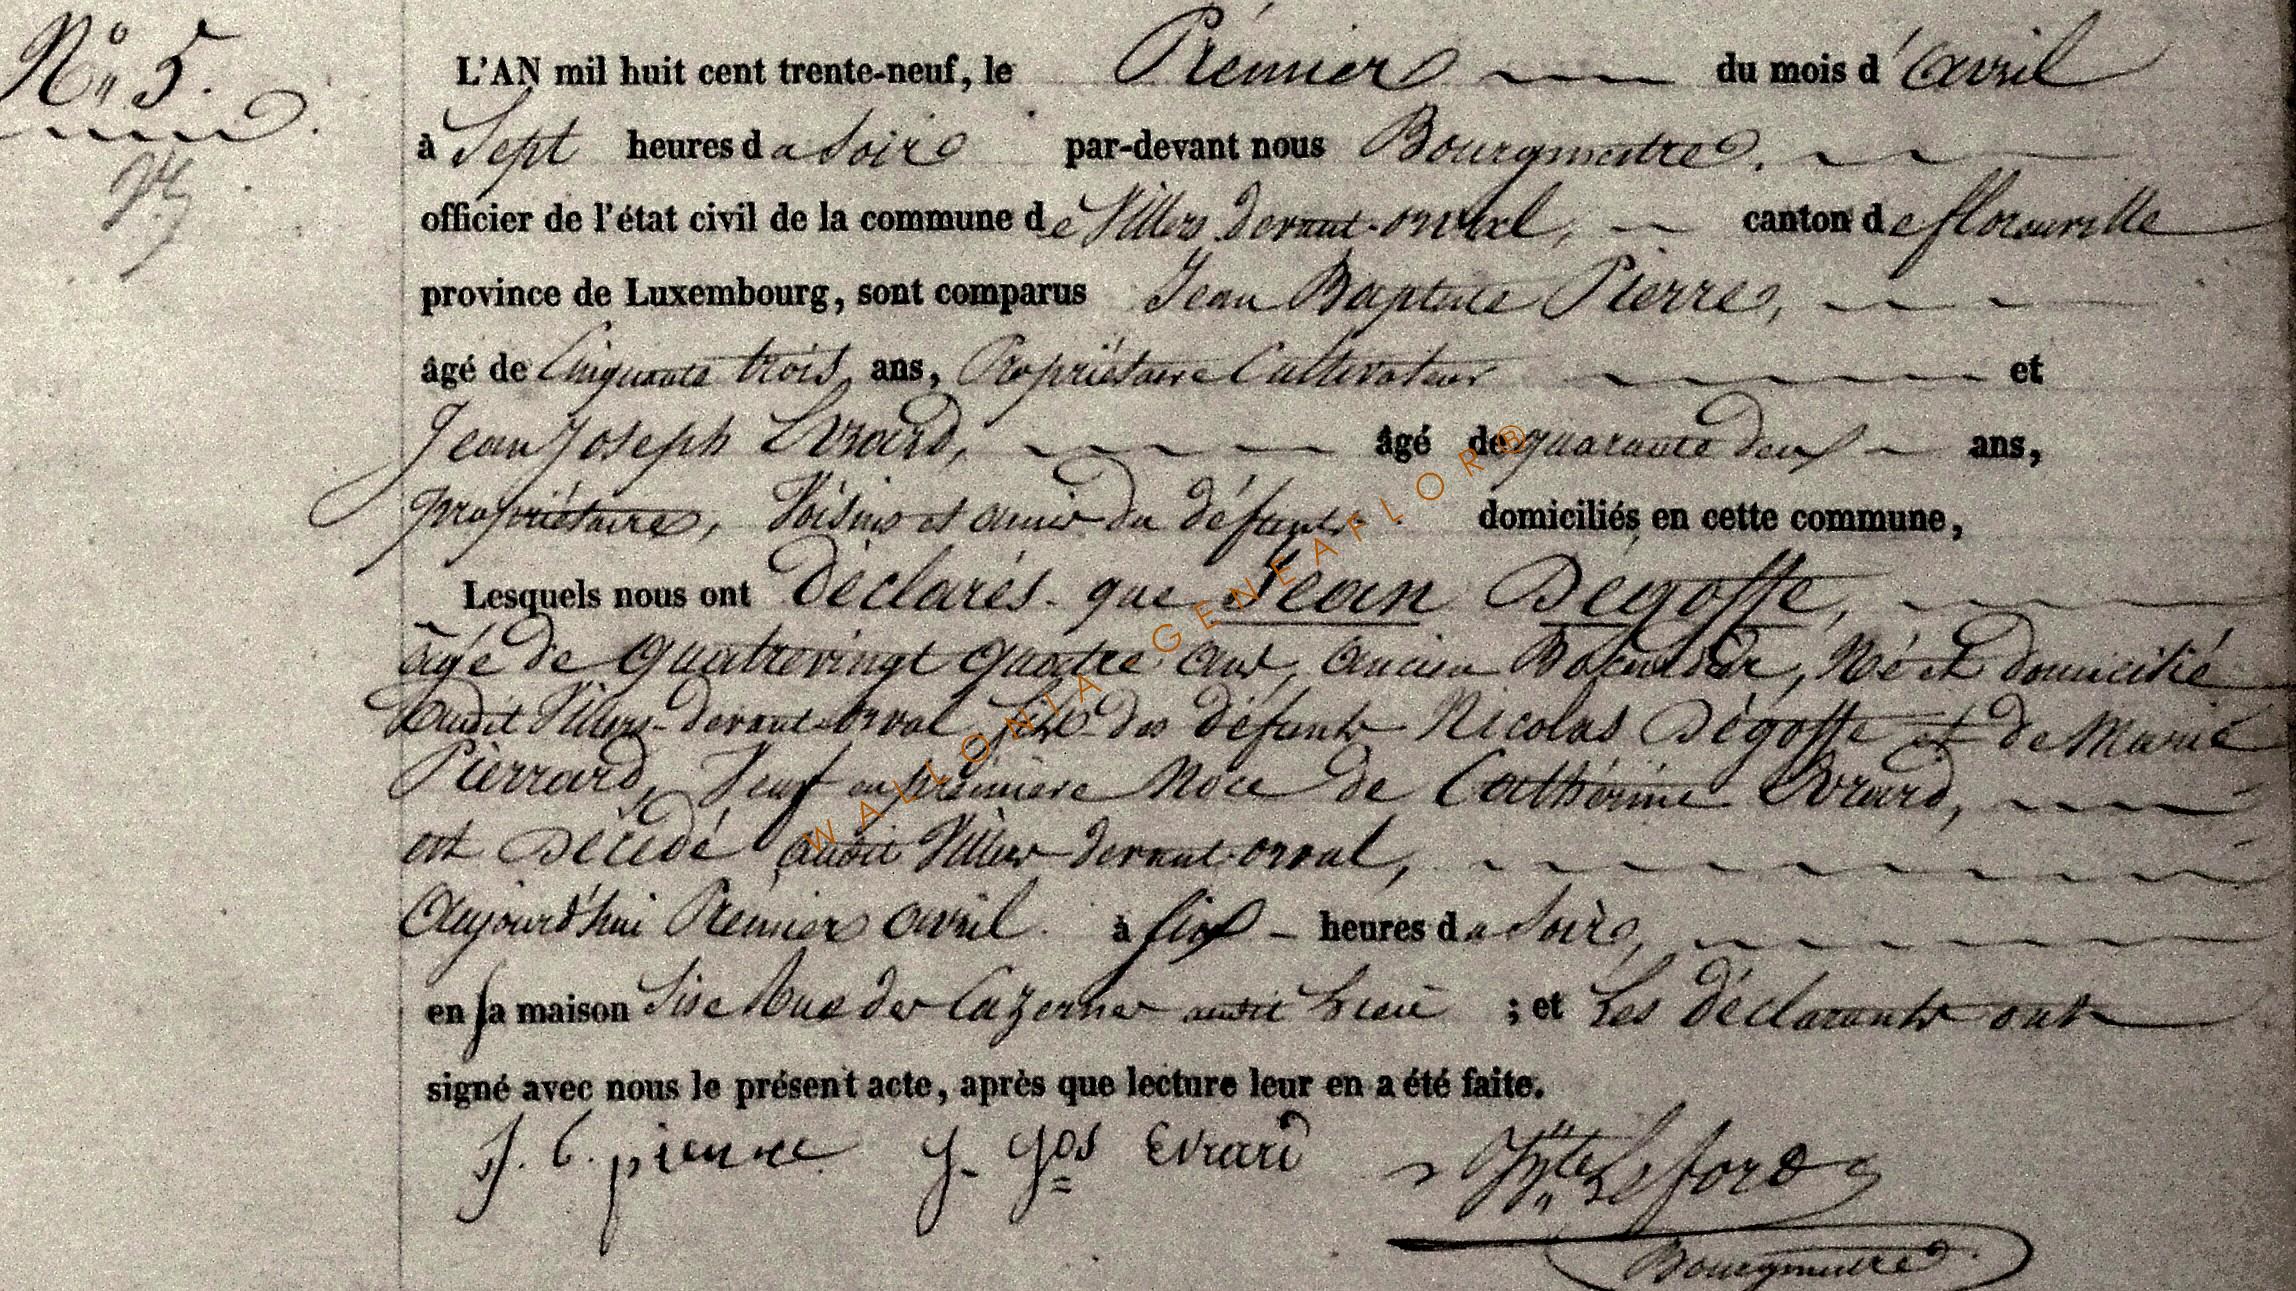 N° 5.
L'AN mil huit cent trente-neuf, le Prémier du mois d'avril
à Sept heures du Soir par-devant nous Bourgmestre.
officier de l'état civil de la commune de Villers devant-orval, canton de florenville
province de Luxembourg, sont comparus Jean Baptiste Pierre,
âgé de Cinquante trois ans, Propriétaire Cultivateur et
Jean Joseph Evrard, âgé de quarante deux ans,
propriétaire, Voisins et amis du défunt. domiciliés en cette commune,
Lesquels nous ont Déclarés que Jean Dégoffe,
âgé de quatrevingt quatre ans, ancien Né et domicilié
audit Villers-devant-orval fils des défunts Nicolas Dégoffe et de Marie
Pierrard, Veuf en prémière Noce de Cathérine Evrard,
est Décédé audit Villers-devant-orval,
Aujourd'hui Prémier avril à six heures du Soir,
en sa maison Sise Rue des Cazernes audit Lieu ; et Les déclarants ont
signé avec nous le présent acte, après que lecture leur en a été faite.
J. B. pierre J. Jos Evrard Hyte Leford
Bourgmestre
WALLONIA GENEAFLOR®